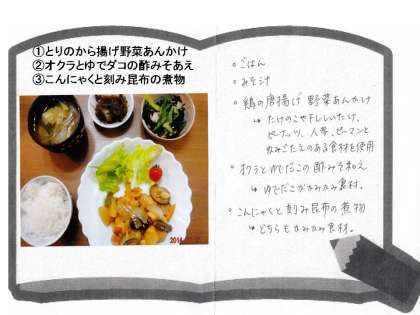 ①とりのから揚げ野菜あんかけ
②オクラとゆでダコの酢みそあえ
③こんにゃくと刻み昆布の煮物
2014
。ごはん
。みそ汁
。鶏の唐揚げ 野菜あんかけ
↳ たけのこや干ししいたけ、
ピーナッツ、人参、ピーマンと
かみごたえのある食材を使用
。オクラとゆでだこの酢みそ和え
↳ ゆでだこがかみかみ食材。
。こんにゃくと刻み昆布の煮物
↳ どちらもかみかみ食材。